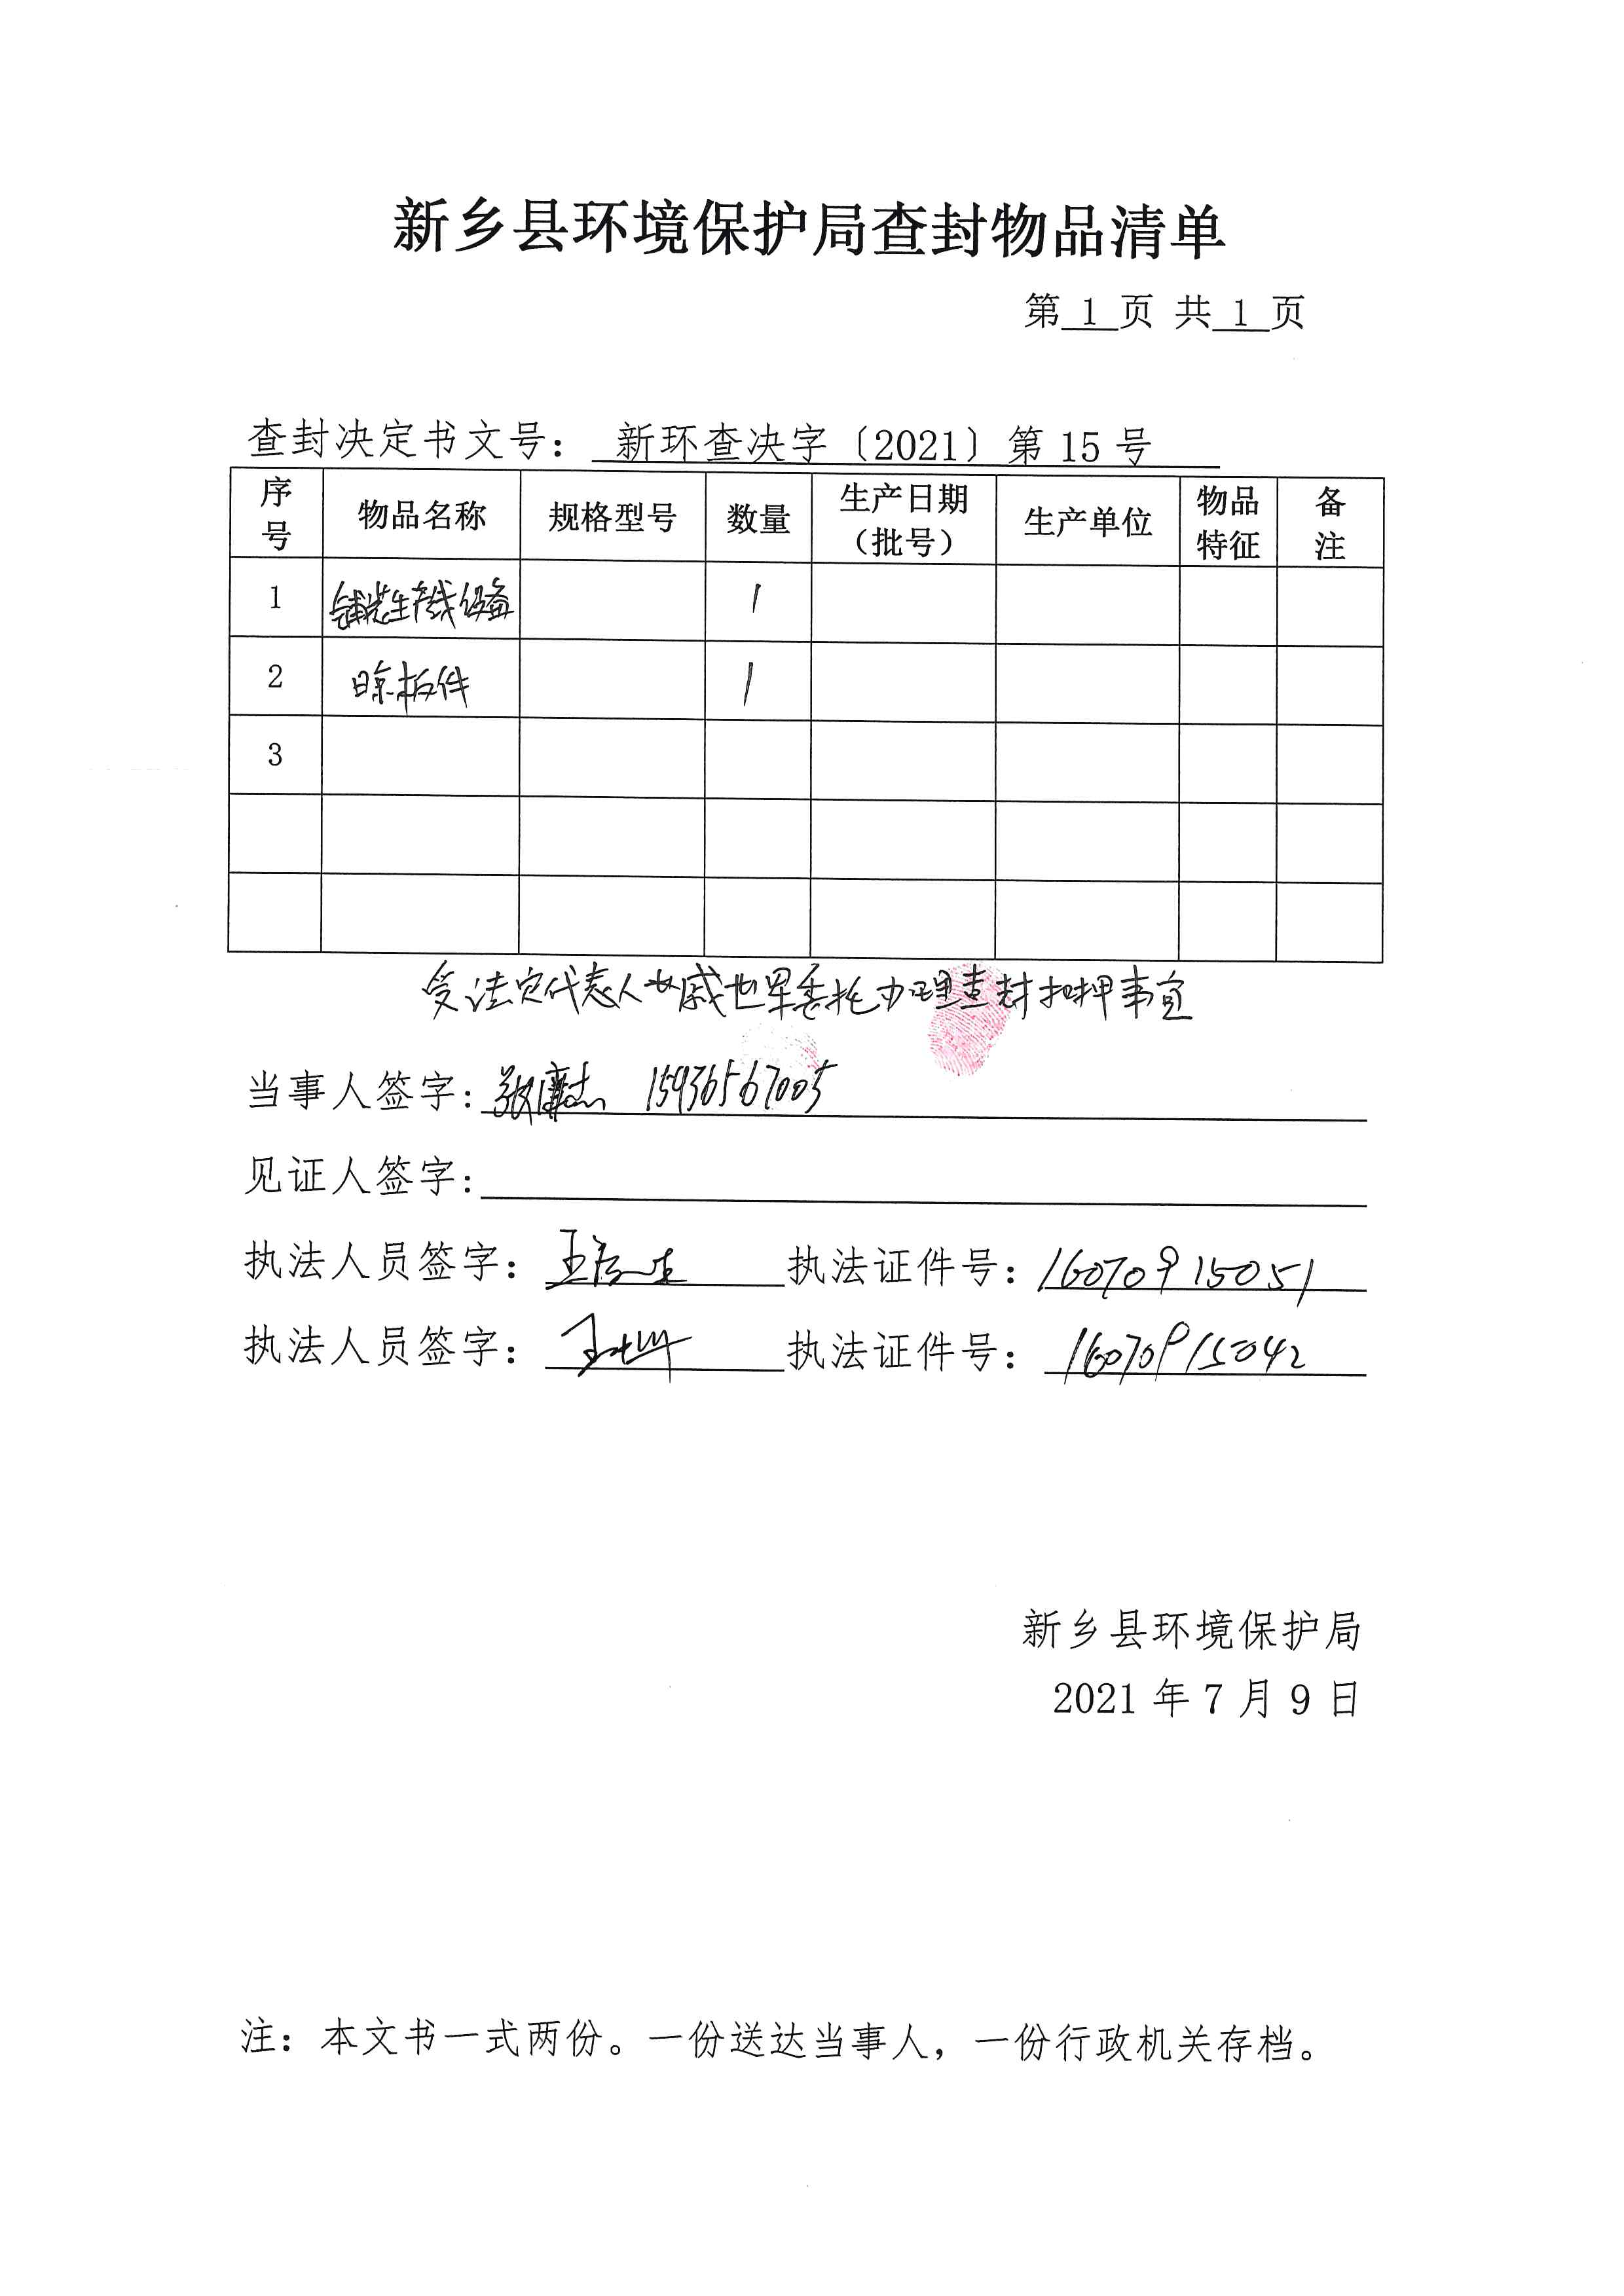 新乡县环境保护局查封物品清单
第 1 页 共 1 页
查封决定书文号： 新环查决字〔2021〕第 15 号
序号 物品名称 规格型号 数量 生产日期（批号） 生产单位 物品特征 备注
1 生产线设备 1
2 晾板件 1
3
受法定代表人 世军委托办理查封扣押事宜
当事人签字： 15936567005
见证人签字：
执法人员签字： 王 执法证件号：16070915051
执法人员签字： 执法证件号：16070915042
新乡县环境保护局
2021 年 7 月 9 日
注：本文书一式两份。一份送达当事人，一份行政机关存档。